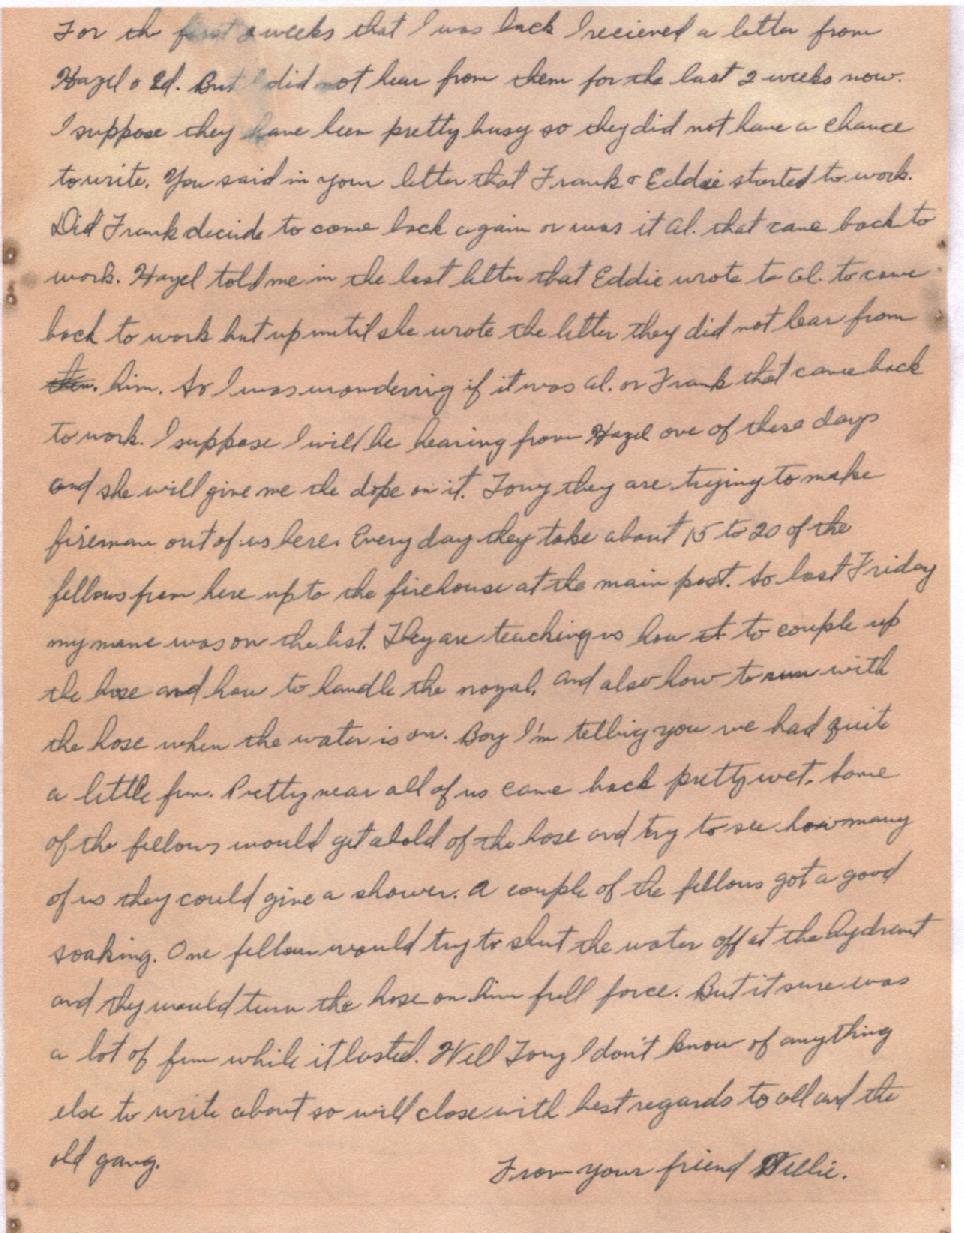 For th first 2 weeks that I was back I recieved a letter from
Hazel & Ed. But I did not hear from them for the last 2 weeks now.
I suppose they have been pretty busy so they did not have a chance
to write. You said in your letter that Frank & Eddie started to work.
Did Frank decide to come back again or was it Al. that came back to
work. Hazel told me in the last letter that Eddie wrote to Al. to come
back to work but up until she wrote the letter they did not hear from
them. him. So I was wondering if it was Al. or Frank that came back
to work. I suppose I will be hearing from Hazel one of these days
and she will give me the dope on it. Tony they are trying to make
fireman out of us here. Every day they take about 15 to 20 of the
fellows from here up to the firehouse at the main post. So last Friday
my name was on the list. They are teaching us how it to couple up
the hose and how to handle the nozal, and also how to run with
the hose when the water is on. Boy I'm telling you we had quite
a little fun. Pretty near all of us came back pretty wet. Some
of the fellows would get ahold of the hose and try to see how many
of us they could give a shower. A couple of the fellows got a good
soaking. One fellow would try to shut the water off at the hydrant
and they would turn the hose on him full force. But it sure was
a lot of fun while it lasted. Well Tony I don't know of anything
else to write about so will close with best regards to all and the
old gang.
From your friend Willie.